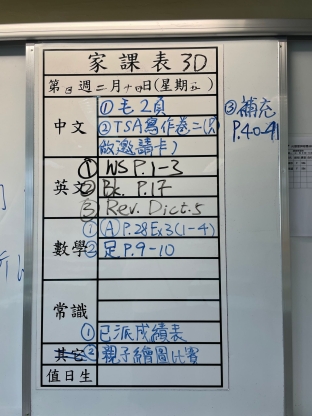 家課表 3D
第3週二月十四日(星期五)
中文
①毛2頁
②TSA寫作卷二(只
做邀請卡)
③補充
P.40-41
英文
① WS P.1-3
② Bk. P.17
③ Rev. Dict.5
數學
①(A)P.28Ex3(1-4)
②足P.9-10
常識
①已派成績表
其它
②親子繪圖比賽
值日生